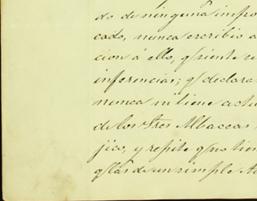 do de ninguna impor
cado, nunca escribio a
cion á ello, q siente
inferencias; q declara
nunca ni tiene actu
de los Stres Albaceas
jico, y repite q no tien
de un simple